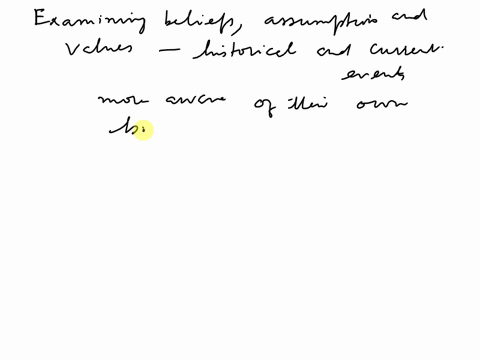 Examining beliefs, assumptions and
values — historical and current
events
more aware of their own
b